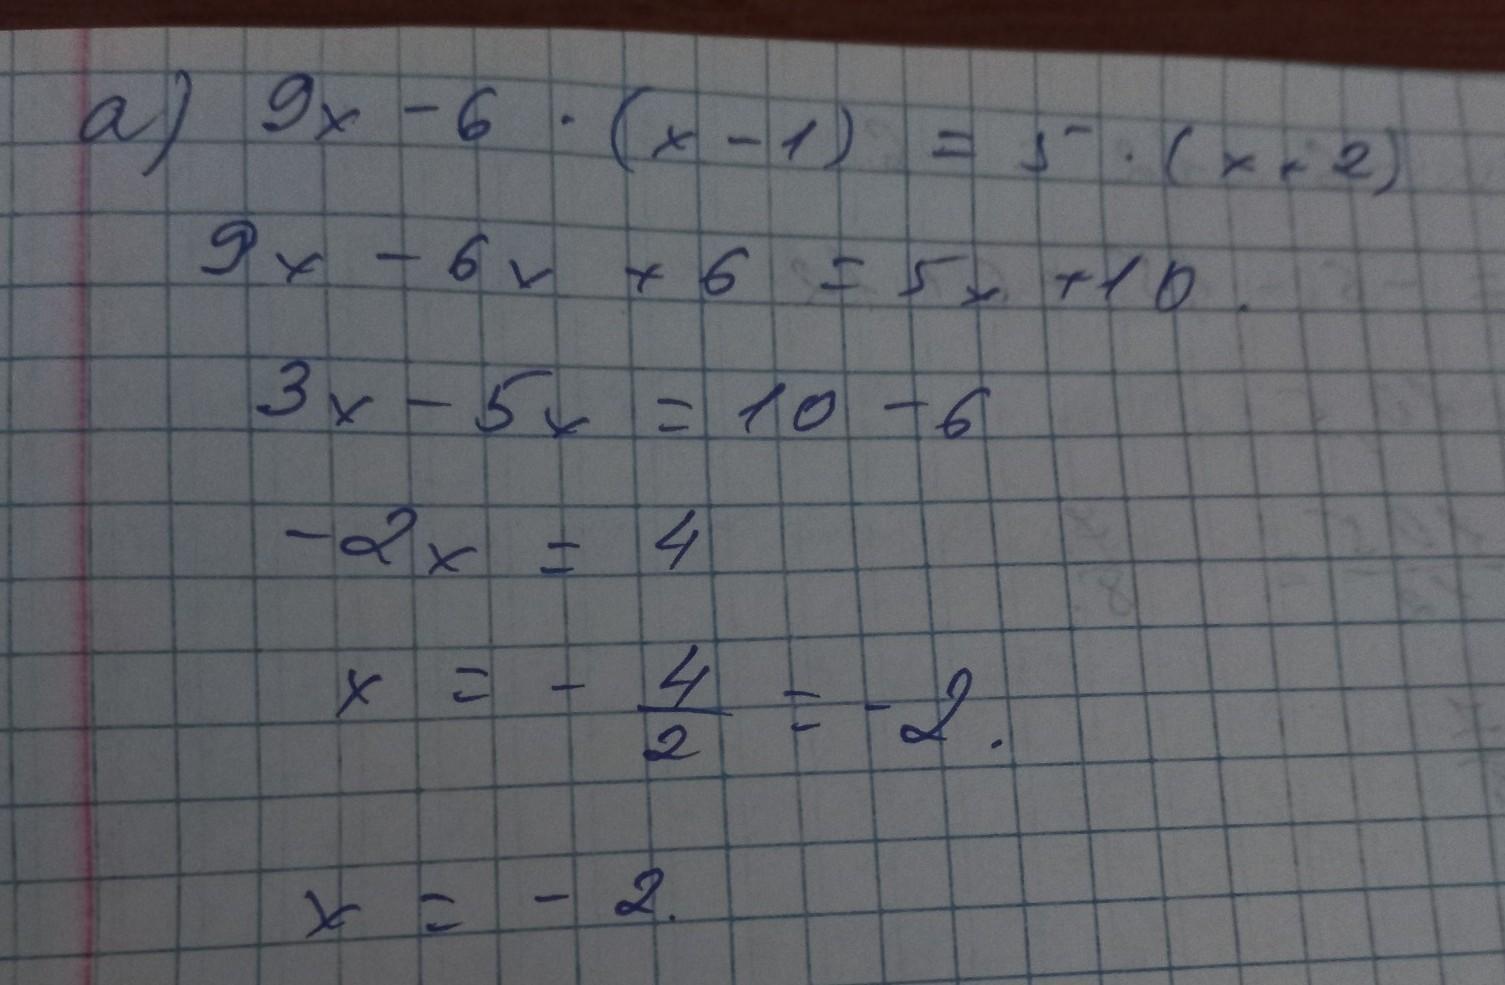 а) 9x - 6 · (x - 1) = 5 · (x + 2)
9x - 6x + 6 = 5x + 10.
3x - 5x = 10 - 6
-2x = 4
x = - 4/2 = -2.
x = - 2.